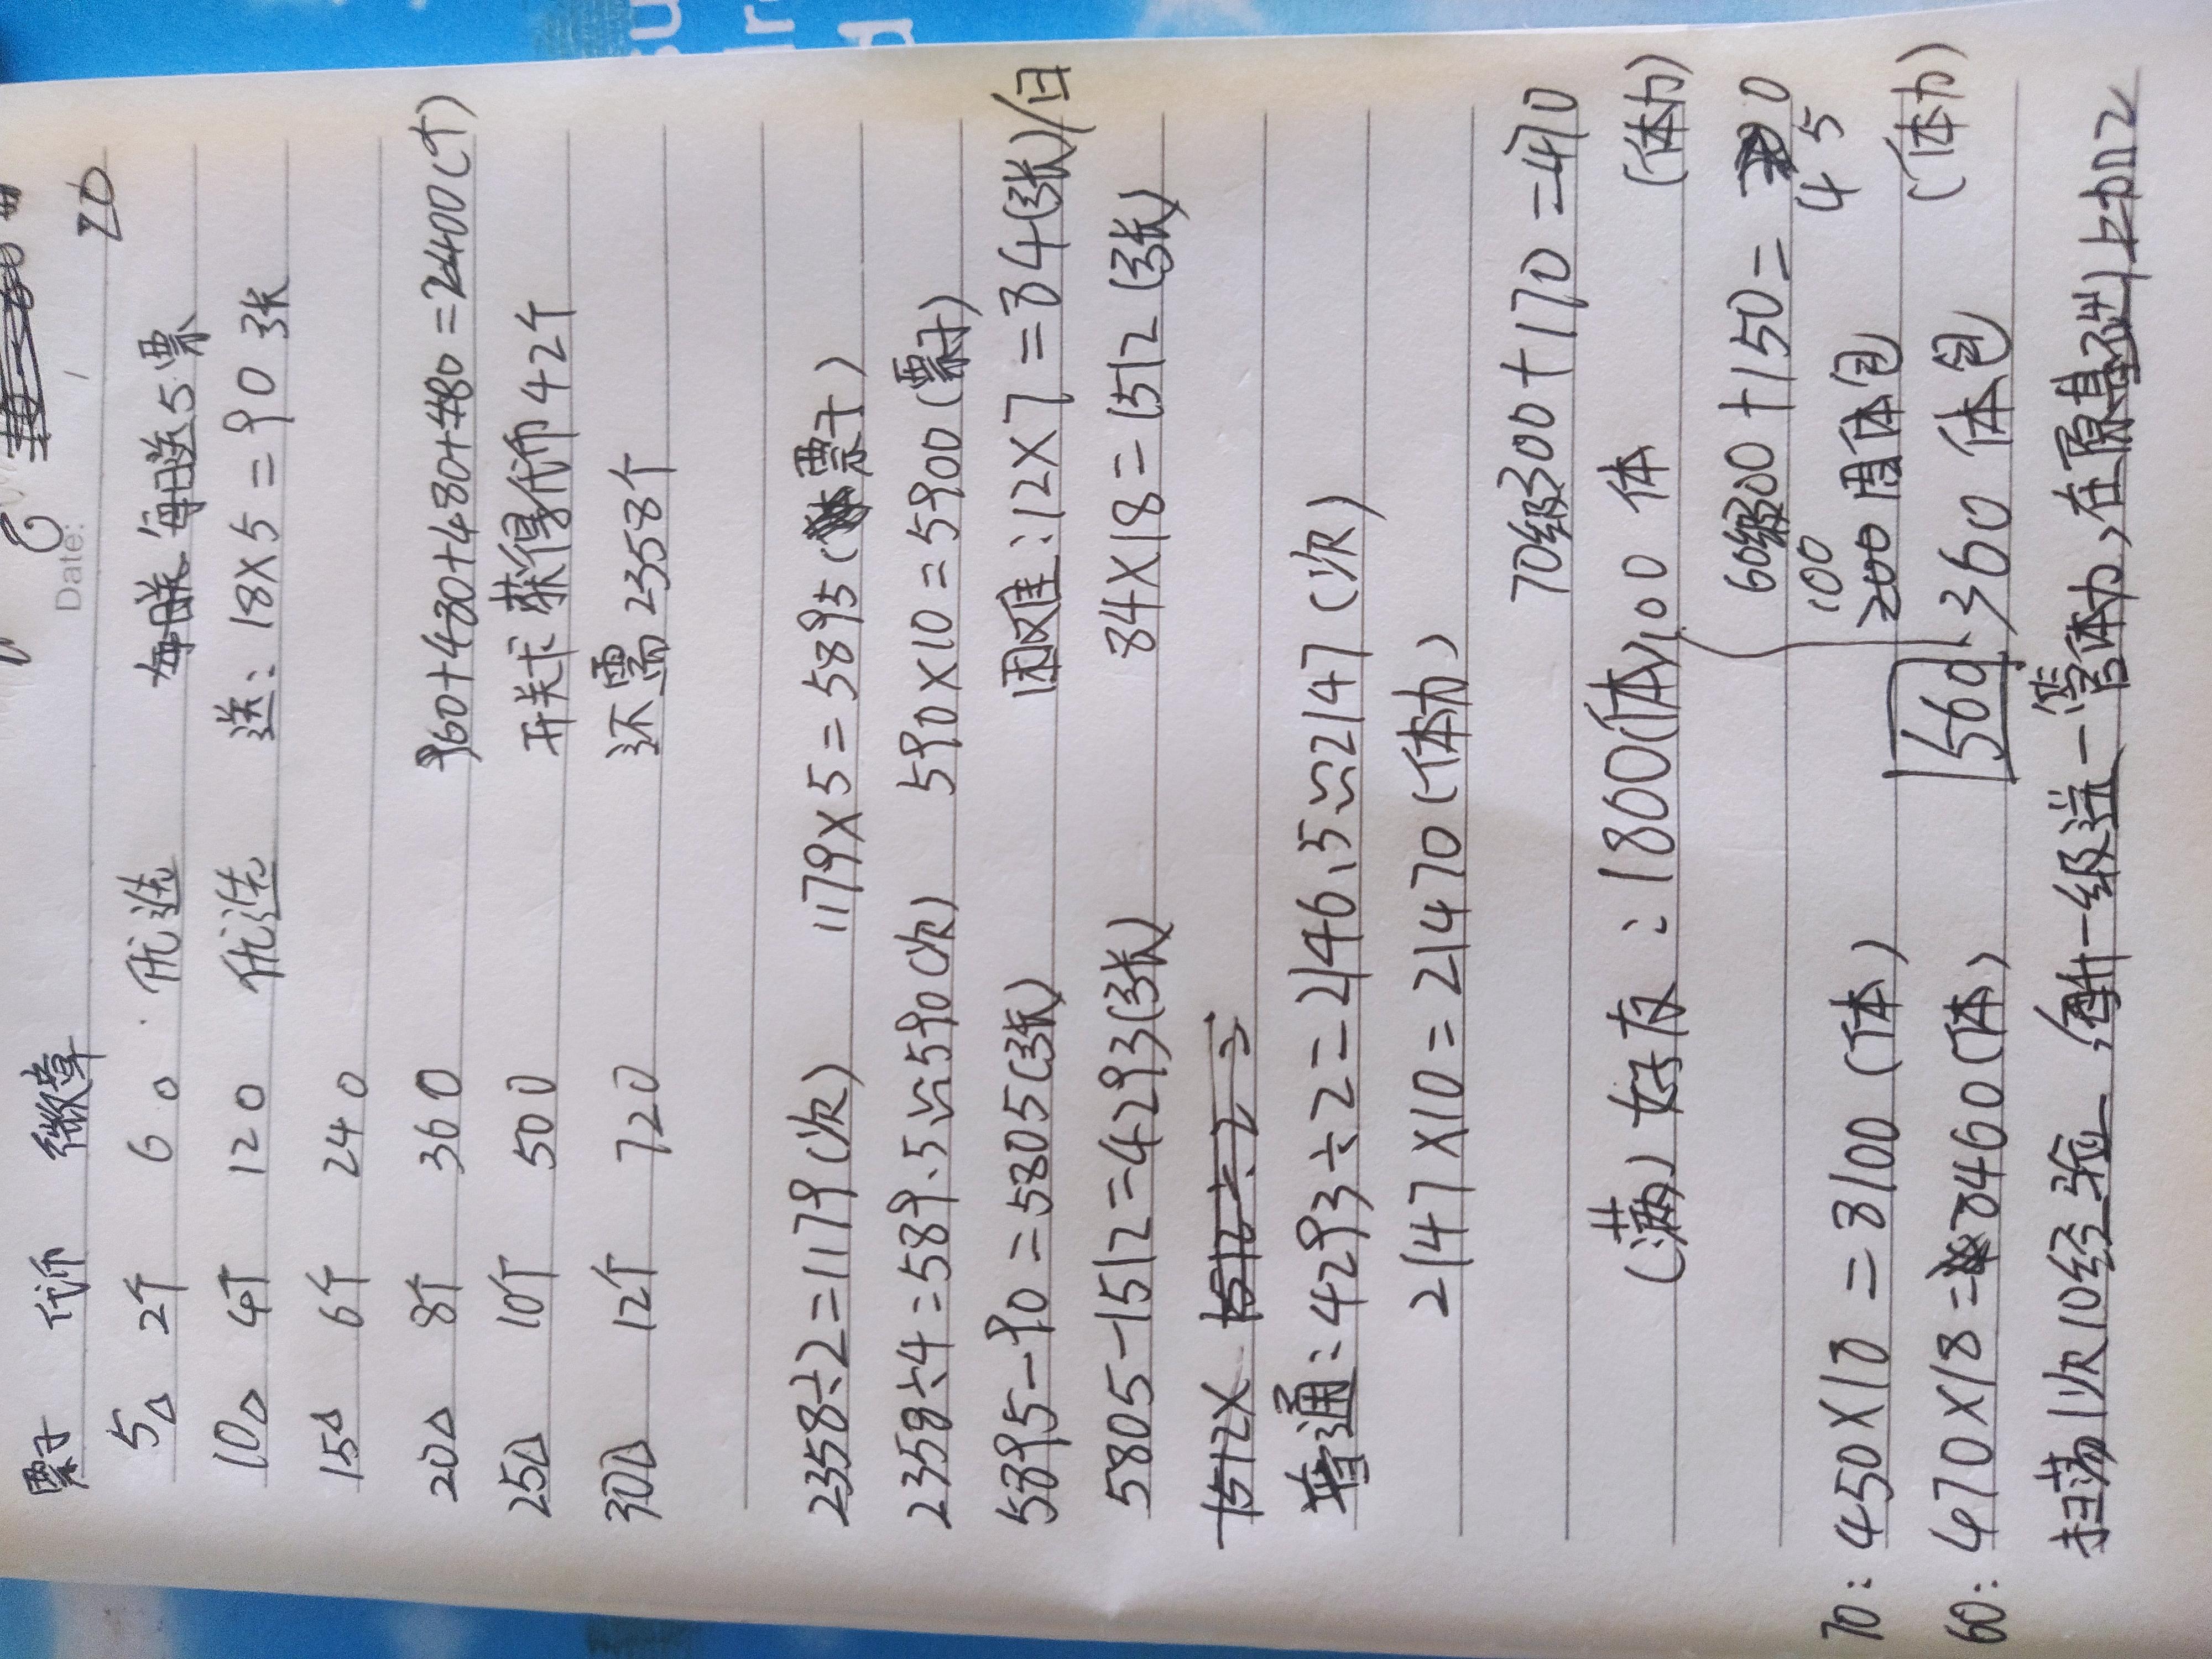 Date: / 20
票子 代币 徽章
5△ 2个 60 优选 每日送5票
10△ 4个 120 优选 送：18×5=90张
15△ 6个 240
20△ 8个 360 960+480+480+480=2400(个)
25△ 10个 500 开关卡获得代币42个
30△ 12个 720 还需2358个
2358÷2=1179(次) 1179×5=5895(票子)
2358÷4=589.5≈590(次) 590×10=5900(票子)
5895-90=5805(张) 困难：12×7=84(张)/日
5805-1512=4293(张) 84×18=1512(张)
1512× 1512÷2=
普通：4293÷2=2146.5≈2147(次)
2147×10=21470(体力)
70级300+170=470
(满)好友：1800体 100体 (体力)
60级300+150=450
70：450×18=8100(体) 100 200周体包 (体力)
60：470×18=8460(体) 560 360体包
扫荡1次10经验，每升一级送一管体力，在原基础上加2